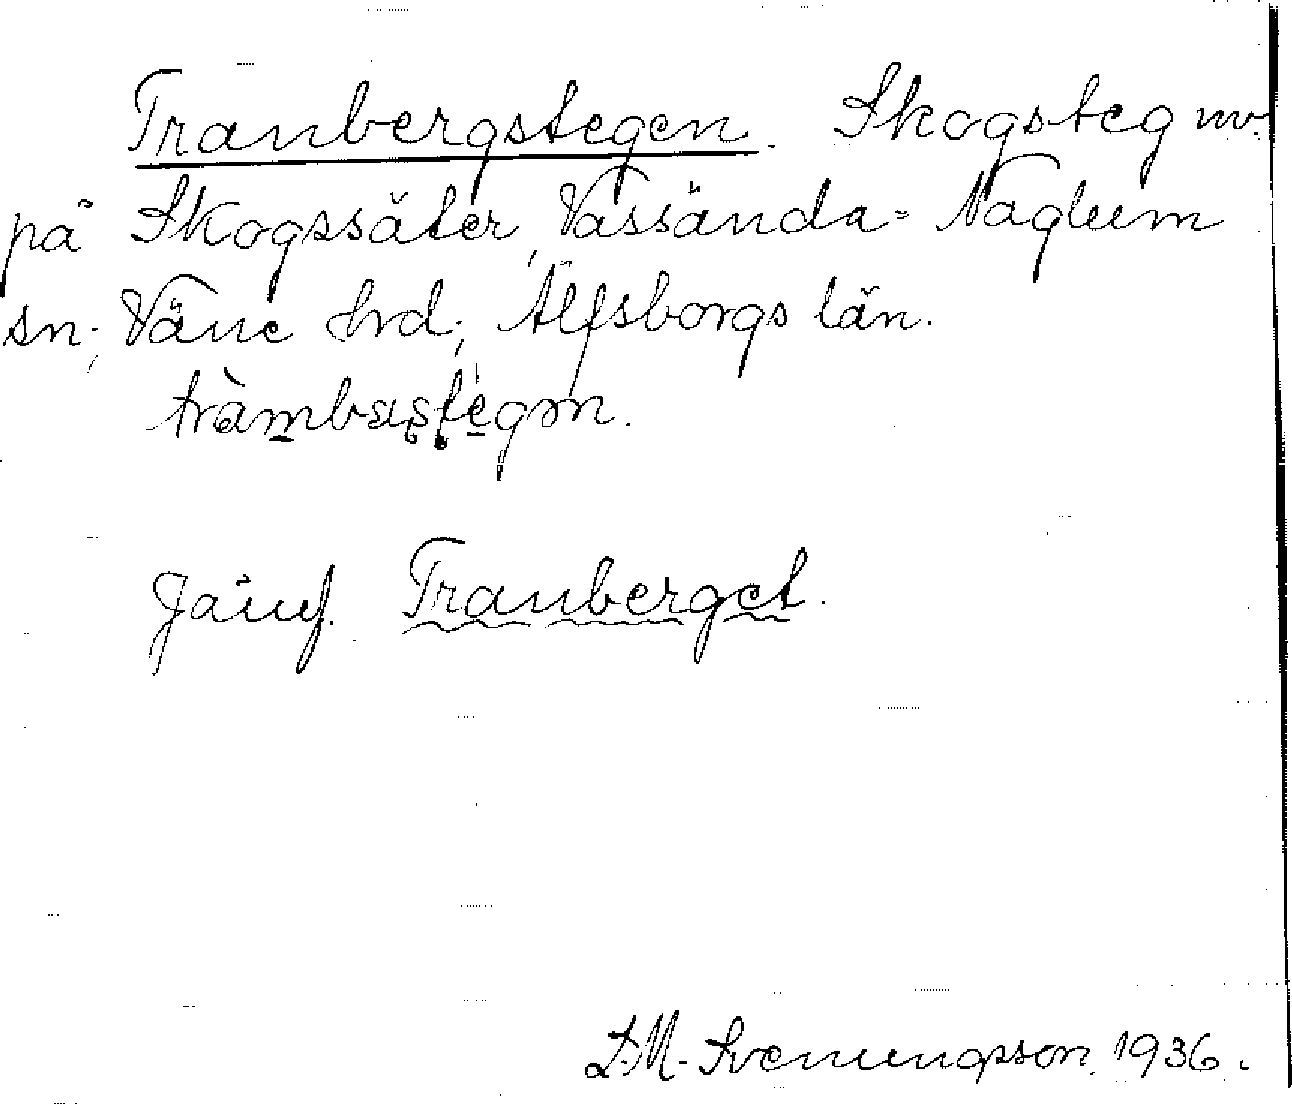 Tranbergstegen. Skogsteg nv.
på Skogssäter, Vassända-Naglum
sn; Väne hrd; Älfsborgs län.
Jämf. Tranberget.
S.M. Svenungsson. 1936.